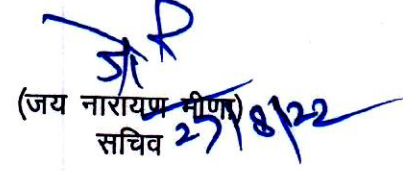 (जय नारायण मीणा)
सचिव 27/8/22